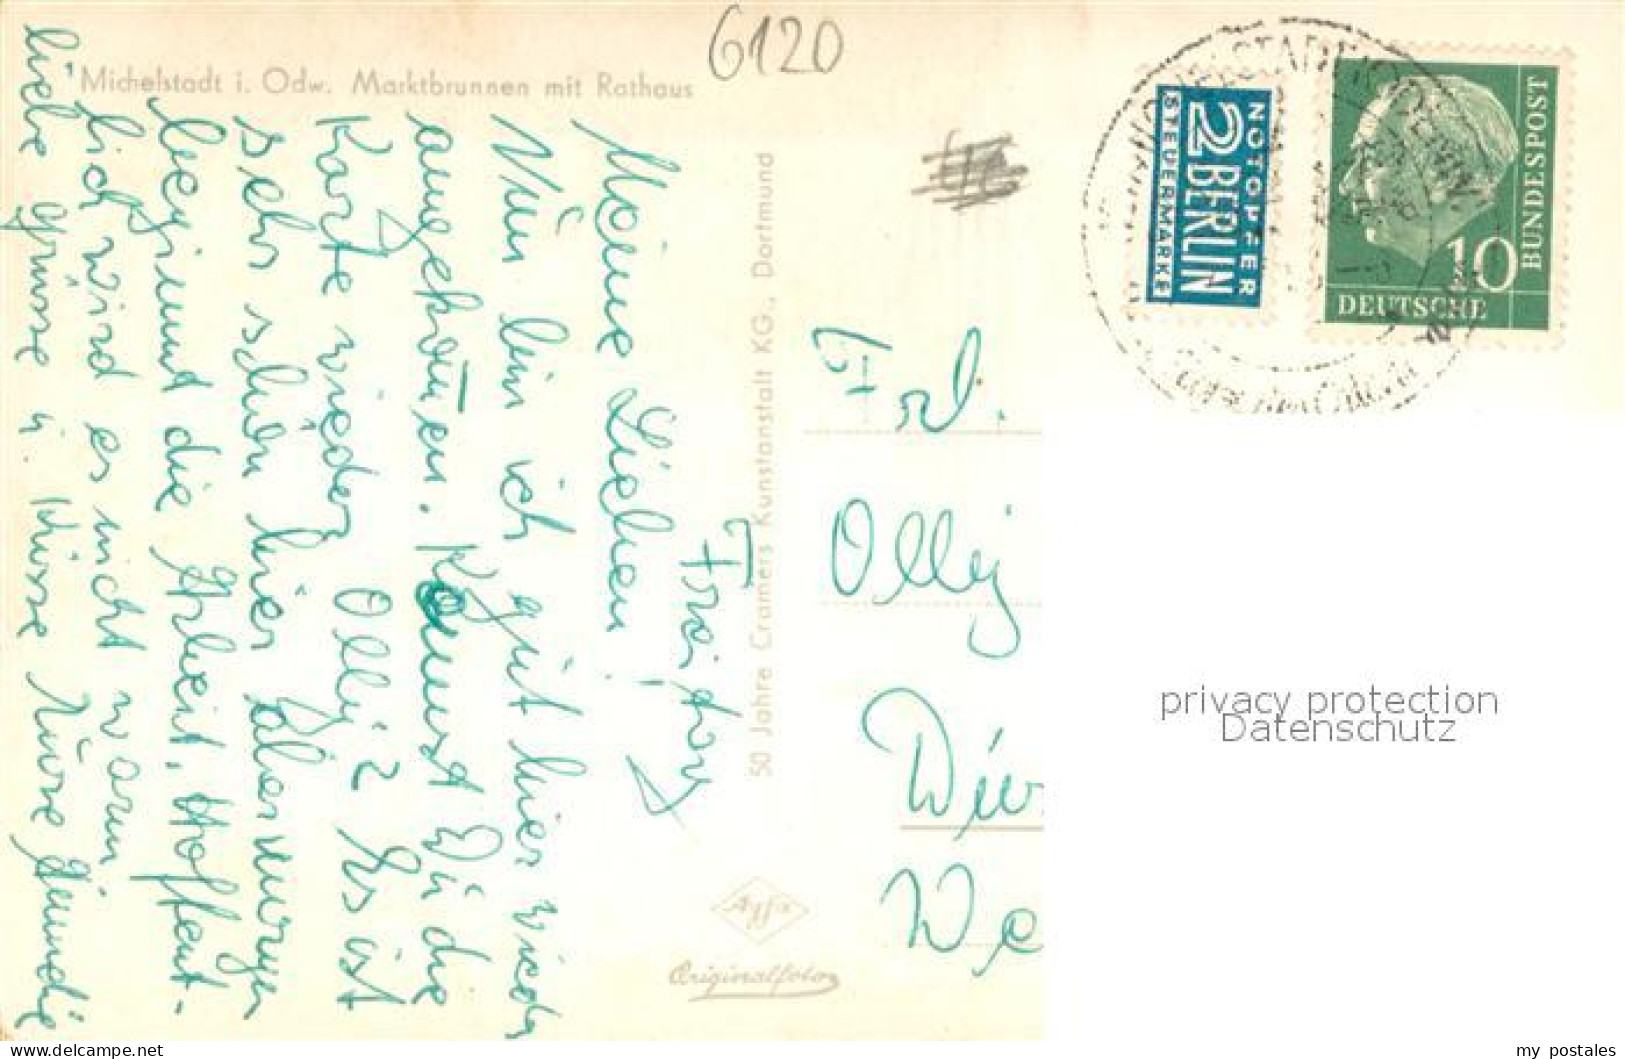 6120
Michelstadt i. Odw. Marktbrunnen mit Rathaus
NOTOPFER
2 BERLIN
STEUERMARKE
DEUTSCHE
BUNDESPOST
10
Freitag
Meine Lieben!
Nun bin ich gut hier wieder
angekommen. Kannst Du die
Karte wieder Olly? Es ist
sehr schön hier aber morgen
beginnt die Arbeit. Hoffent-
lich wird es nicht warm
liebe Grüsse u. Küsse Eure
50 Jahre Cramers Kunstanstalt KG., Dortmund
Agfa
Originalfoto
Frl.
Olly
We
privacy protection
Datenschutz
hier-war-das-bild.de
my postales